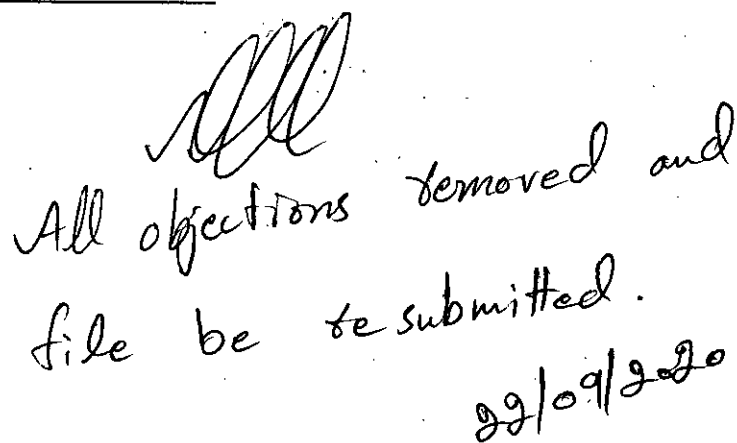 All objections removed and
file be resubmitted.
22/09/2020